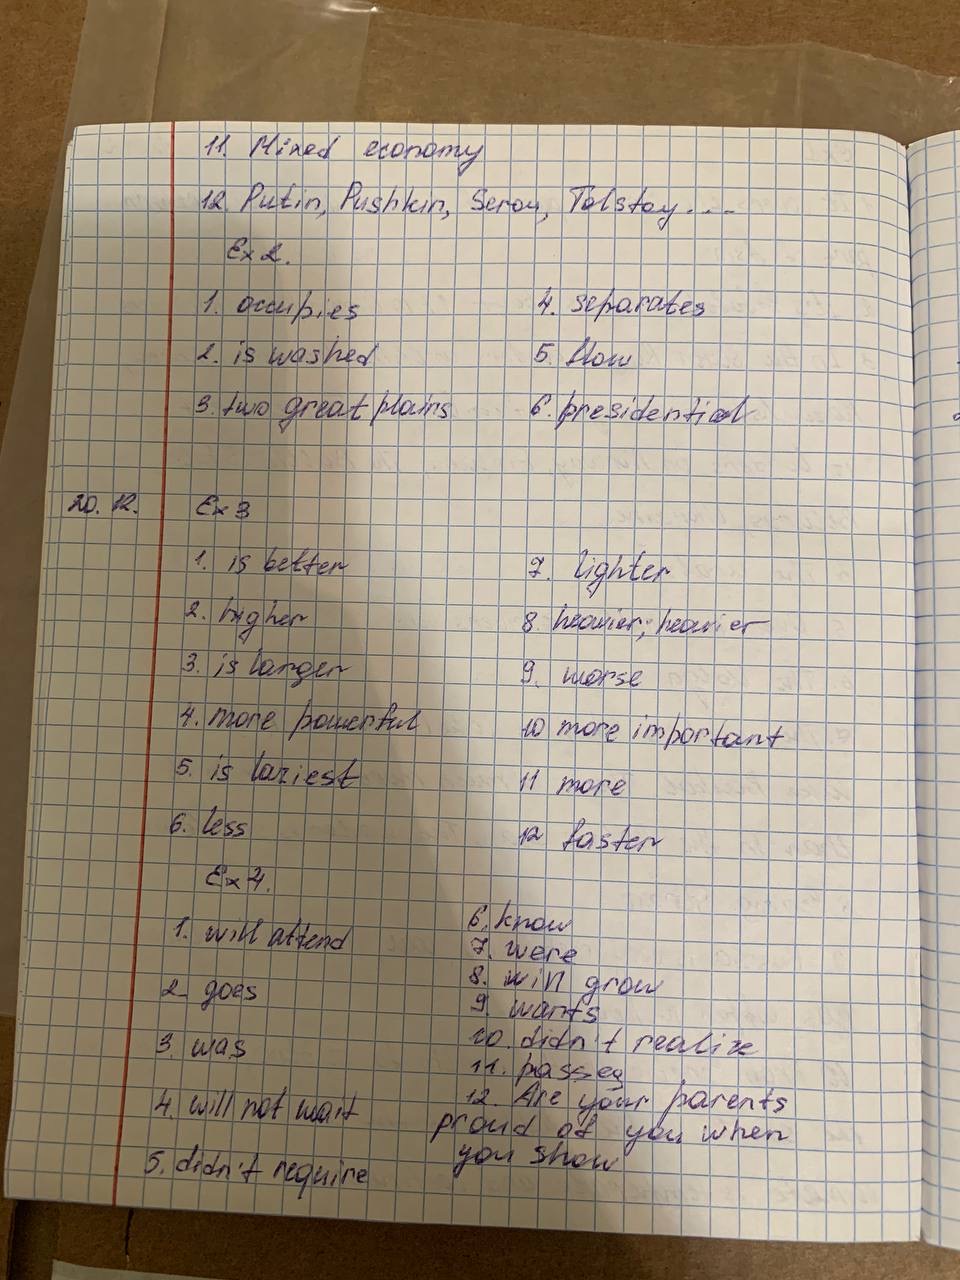 11. Mixed economy
12. Putin, Pushkin, Serov, Tolstoy...
Ex 2.
1. occupies
2. is washed
3. two great plains
4. separates
5. flow
6. presidential
20. 12.
Ex 3
1. is better
2. higher
3. is larger
4. more powerful
5. is laziest
6. less
7. lighter
8. heavier; heavier
9. worse
10 more important
11 more
12 faster
Ex 4.
1. will attend
2. goes
3. was
4. will not wait
5. didn't require
6. know
7. were
8. will grow
9. wants
10. didn't realize
11. passed
12. Are your parents
proud of you when
you show